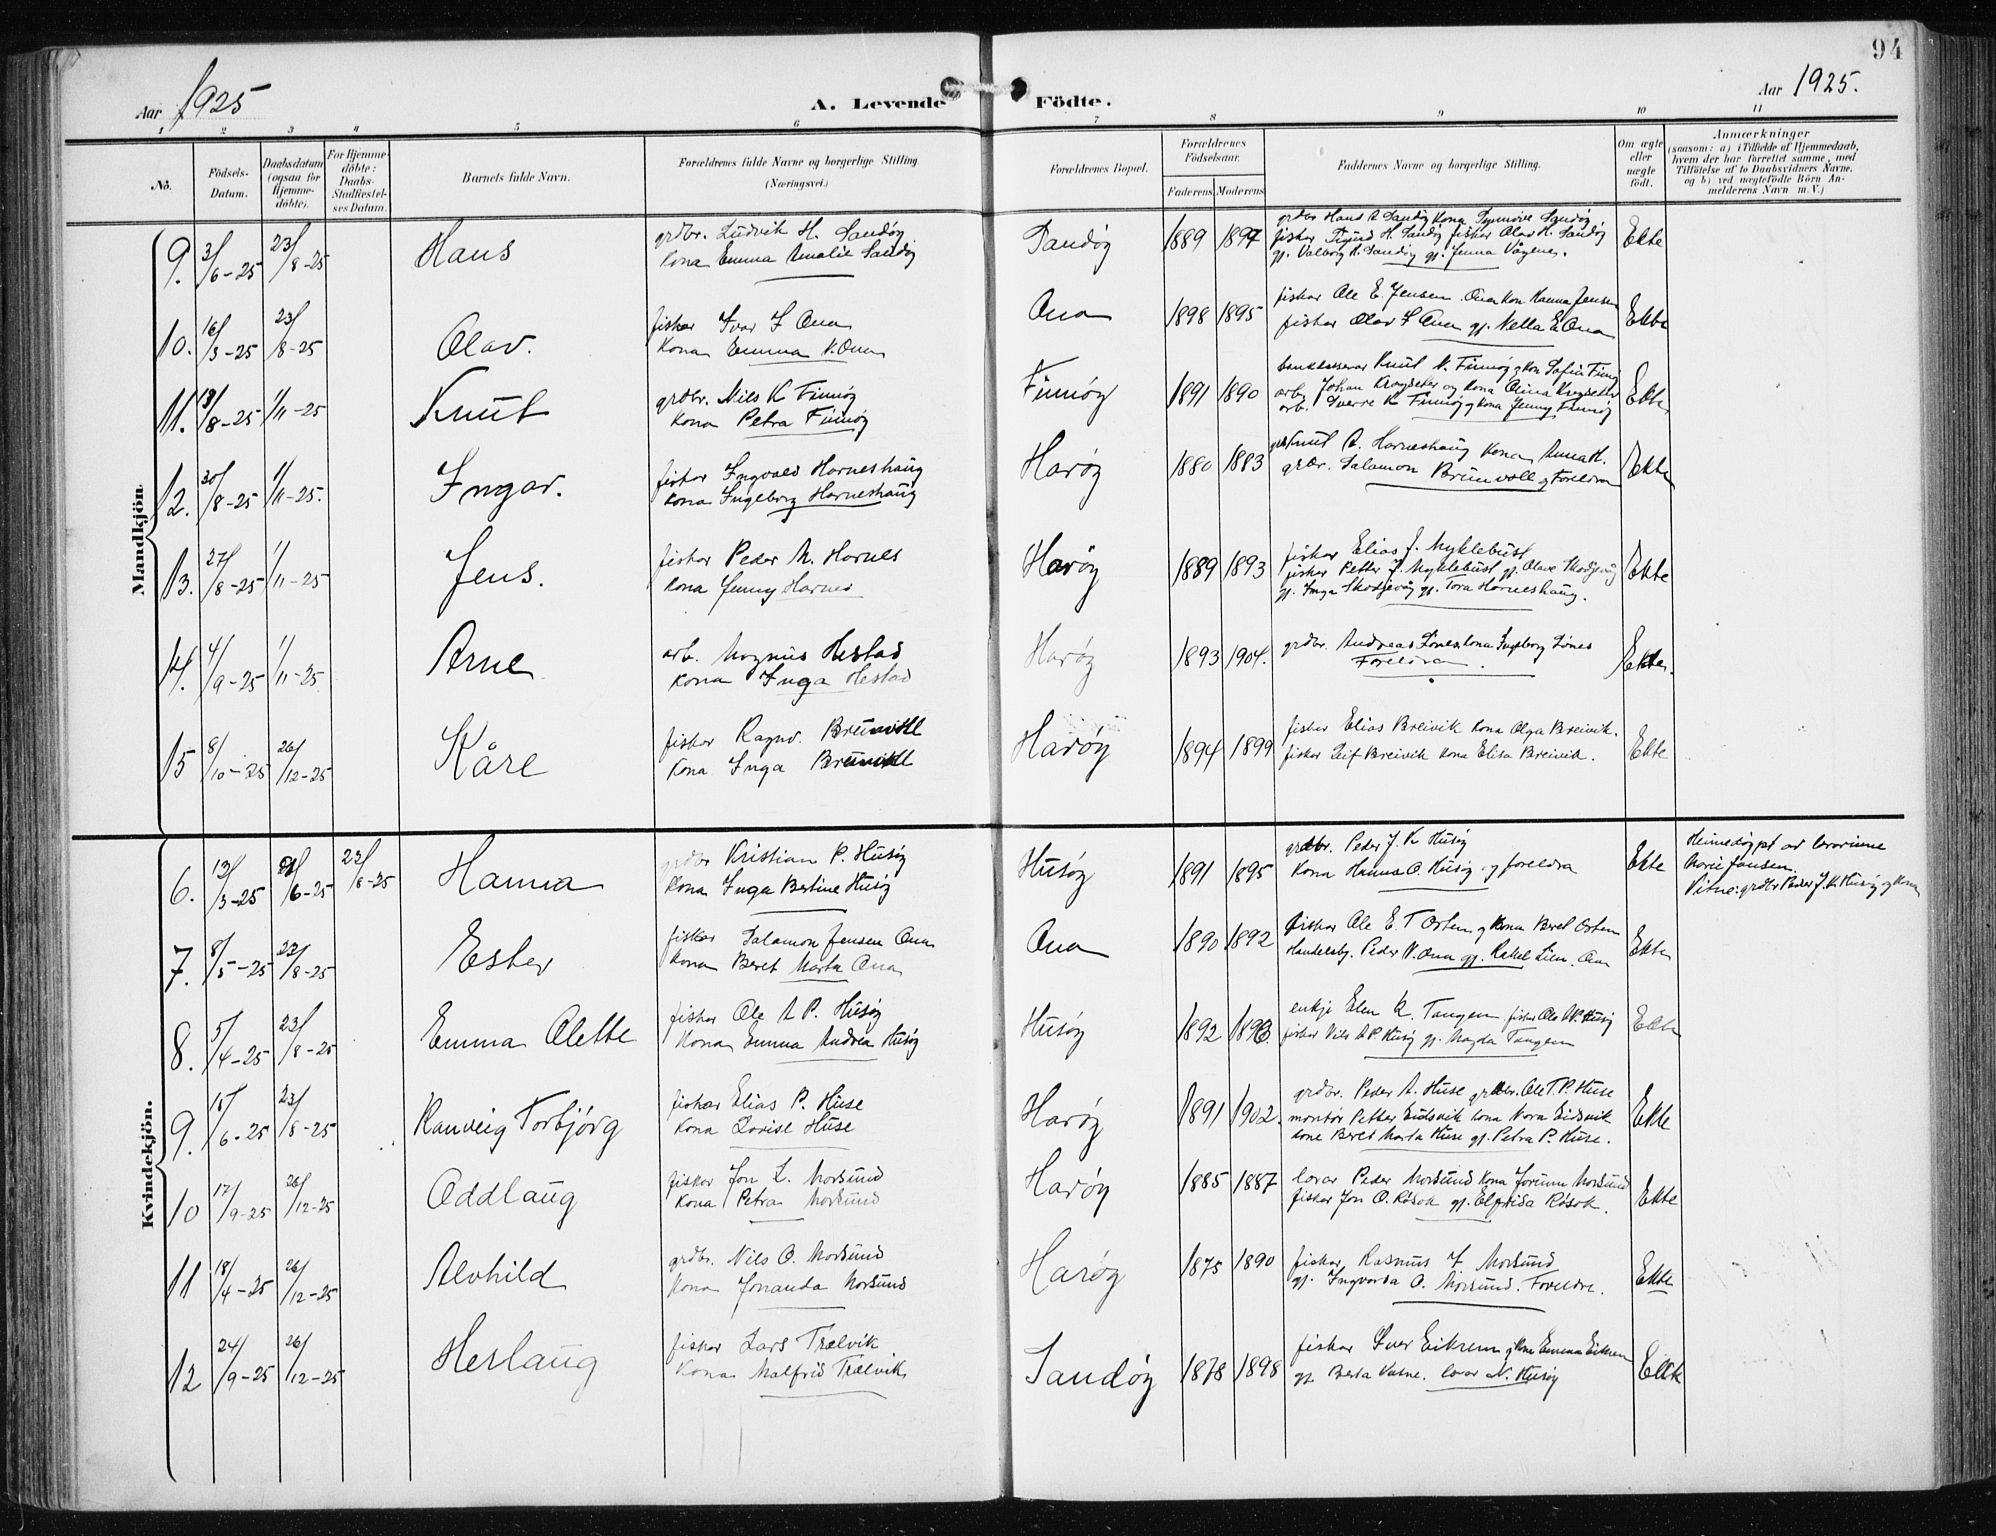 94
Aar 1925
A. Levende Födte.
Aar 1925.
1 2 3 4 5 6 7 8 9 10 11
No.
Födsels-
Datum.
Daabsdatum
(ogsaa for
Hjemme-
döbte).
For Hjemme-
döbte:
Daabs-
Stadfæstel-
ses Datum.
Barnets fulde Navn.
Forældrenes fulde Navne og borgerlige Stilling.
(Næringsvei.)
Forældrenes Bopæl.
Forældrenes
Födselsaar.
Faderens Moderens
Faddernes Navne og borgerlige Stilling.
Om ægte
eller
uægte
födt.
Anmærkninger
(saasom: a) i Tilfælde af Hjemmedaab,
hvem der har forrettet samme, med
Tilföielse af to Daabsvidners Navne,
og b) ved uægtefödte Börn An-
melderens Navn m. V.)
Mandkjön.
9. 3/6-25 23/8-25 Hans
grdbr. Ludvik H. Sandøy
Kona Emma Amalie Sandøy
Sandøy 1889 1897
grdbr Hans A Sandøy Kona Synnøve Sandøy
fiskar Sigurd H. Sandøy fiskar Olav H. Sandøy
gj. Valborg A. Sandøy gj. Jenna Vågenes.
Ekte
10. 16/3-25 23/8-25 Olav.
fiskar Ivar I Ona
Kona Emma K. Ona
Ona 1898 1895
fiskar Ole E. Jensen Ona kon Hanna Jensen
fiskar Olav I Ona gj. Nella E. Ona
Ekte
11. 13/8-25 1/11-25 Knut
grdbr. Nils K Finnøy
Kona Petra Finnøy
Finnøy 1891 1890
Knut N. Finnøy og kon Sofia Finnøy
arb. Johan Krogseter og kona Olina Krogseter
arb. Sverre K Finnøy og kona Jenny Finnøy
Ekte
12. 30/8-25 1/11-25. Ingar.
fiskar Ingvald Harneshaug
Kona Ingeborg Harneshaug
Harøy 1880 1883
grdbr Knut A. Harneshaug Kona Anna H.
grdbr. Salamon Brunvoll og Foreldra
Ekte
13. 27/8-25 1/11-25 Jens.
fiskar Peder M. Harnes
Kona Jenny Harnes
Harøy 1889 1893
fiskar Elias J. Myklebust
fiskar Petter J. Myklebust gj. Olave Skodjevåg
gj. Inga Skodjevåg gj. Tora Harneshaug.
Ekte
14. 4/9-25 1/11-25. Arne
arb. Magnus Hestad
Kona Inga Hestad
Harøy 1893 1904.
grdbr. Andreas Lønes kona Ingeborg Lønes
Foreldra
Ekte.
15 8/10-25 26/12-25 Kåre
fiskar Ragnv. Breivik
Kona Inga Breivik
Harøy 1894 1899
fiskar Elias Breivik kona Olga Breivik.
fiskar Leif Breivik kona Elisa Breivik.
Ekte
Kvindekjön.
6. 13/3-25 21/6-25 23/8-25 Hanna
grdbr Kristian P. Husøy
Kona Inga Bertine Husøy
Husøy 1891 1895
grdbr. Peder J. K Husøy
Kona Hanna O. Husøy og foreldra
Ekte
Heimedøypt av lærarinne
Marie Jansen.
Vitne: grdbr Peder J. K. Husøy og Kona
7. 8/5-25 23/8-25 Ester
fiskar Salamon Jensen Ona
Kona Beret Marta Ona
Ona 1890 1892
fiskar Ole E. T Osten og kona Beret Osten
Handelsbg. Peder V. Ona gj. Rakel Lien. Ona
Ekte
8. 5/4-25 23/8-25 Emma Olette
fiskar Ole A P. Husøy
Kona Emma Andrea Husøy
Husøy 1892 1893.
enkje Elen K. Tangen fiskar Ole A.P. Husøy
fiskar Nils A P. Husøy gj. Magda Tangen
Ekte
9. 15/6-25 23/8-25 Ranveig Torbjørg
fiskar Elias P. Huse
Kona Lovise Huse
Harøy 1891 1902.
grdbr. Peder A. Huse grdbr. Ole T. P. Huse
montør Petter Eidsvik kona Nora Eidsvik
kone Beret Marta Huse gj. Petra P. Huse.
Ekte
10 17/9-25 26/12-25 Oddlaug
fiskar Jon L. Morsund
Kona Petra Morsund
Harøy 1885 1887
lærar Peder Morsund Kona Jorunn Morsund
fiskar Jon O. Røsok gj. Elfrida Røsok.
Ekte
11 18/4-25 26/12-25 Alvhild
grdbr. Nils O. Morsund
Kona Jonanda Morsund
Harøy 1875 1890
fiskar Rasmus J. Morsund
gj. Ingvarda O. Morsund. Foreldre.
Ekte
12 24/9-25 26/12-25 Herlaug
fiskar Lars Trælvik
Kona Malfrid Trælvik
Sandøy 1878 1898
fiskar Iver Eikrem og kona Emma Eikrem
gj. Berta Vatne. lærar N. Husøy
Ekte